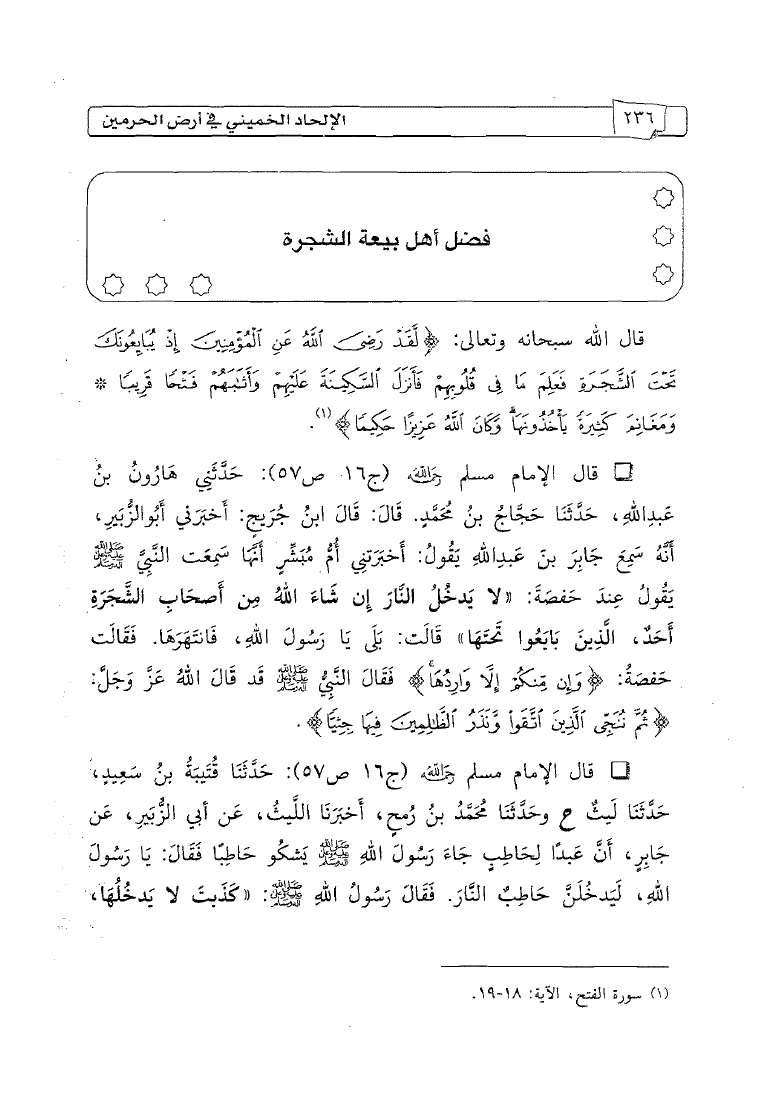 ٢٣٦
الإلحاد الخميني في أرض الحرمين
فضل أهل بيعة الشجرة
قال الله سبحانه وتعالى: ﴿لَّقَدْ رَضِيَ اللَّهُ عَنِ الْمُؤْمِنِينَ إِذْ يُبَايِعُونَكَ
تَحْتَ الشَّجَرَةِ فَعَلِمَ مَا فِي قُلُوبِهِمْ فَأَنزَلَ السَّكِينَةَ عَلَيْهِمْ وَأَثَابَهُمْ فَتْحًا قَرِيبًا *
وَمَغَانِمَ كَثِيرَةً يَأْخُذُونَهَا وَكَانَ اللَّهُ عَزِيزًا حَكِيمًا﴾(١).
❑ قال الإمام مسلم رحمه الله (ج١٦ ص٥٧): حَدَّثَنِي هَارُونُ بنُ
عَبدِاللهِ، حَدَّثَنَا حَجَّاجُ بنُ مُحَمَّدٍ. قَالَ: قَالَ ابنُ جُرَيجٍ: أَخبَرَني أَبُوالزُّبَيرِ،
أَنَّهُ سَمِعَ جَابِرَ بنَ عَبدِاللهِ يَقُولُ: أَخبَرَتنِي أُمُّ مُبَشِّرٍ أَنَّهَا سَمِعَت النَّبِيَّ ﷺ
يَقُولُ عِندَ حَفصَةَ: «لا يَدخُلُ النَّارَ إِن شَاءَ اللهُ مِن أَصحَابِ الشَّجَرَةِ
أَحَدٌ، الَّذِينَ بَايَعُوا تَحتَهَا» قَالَت: بَلَى يَا رَسُولَ اللهِ، فَانتَهَرَهَا. فَقَالَت
حَفصَةُ: ﴿وَإِن مِّنكُمْ إِلَّا وَارِدُهَا﴾ فَقَالَ النَّبِيُّ ﷺ قَد قَالَ اللهُ عَزَّ وَجَلَّ:
﴿ثُمَّ نُنَجِّي الَّذِينَ اتَّقَوا وَّنَذَرُ الظَّالِمِينَ فِيهَا جِثِيًّا﴾.
❑ قال الإمام مسلم رحمه الله (ج١٦ ص٥٧): حَدَّثَنَا قُتَيبَةُ بنُ سَعِيدٍ،
حَدَّثَنَا لَيثٌ ح وحَدَّثَنَا مُحَمَّدُ بنُ رُمحٍ، أَخبَرَنَا اللَّيثُ، عَن أبي الزُّبَيرِ، عَن
جَابِرٍ، أَنَّ عَبدًا لِحَاطِبٍ جَاءَ رَسُولَ اللهِ ﷺ يَشكُو حَاطِبًا فَقَالَ: يَا رَسُولَ
اللهِ، لَيَدخُلَنَّ حَاطِبٌ النَّارَ. فَقَالَ رَسُولُ اللهِ ﷺ: «كَذَبتَ لا يَدخُلُهَا،
(١) سورة الفتح، الآية: ١٨-١٩.